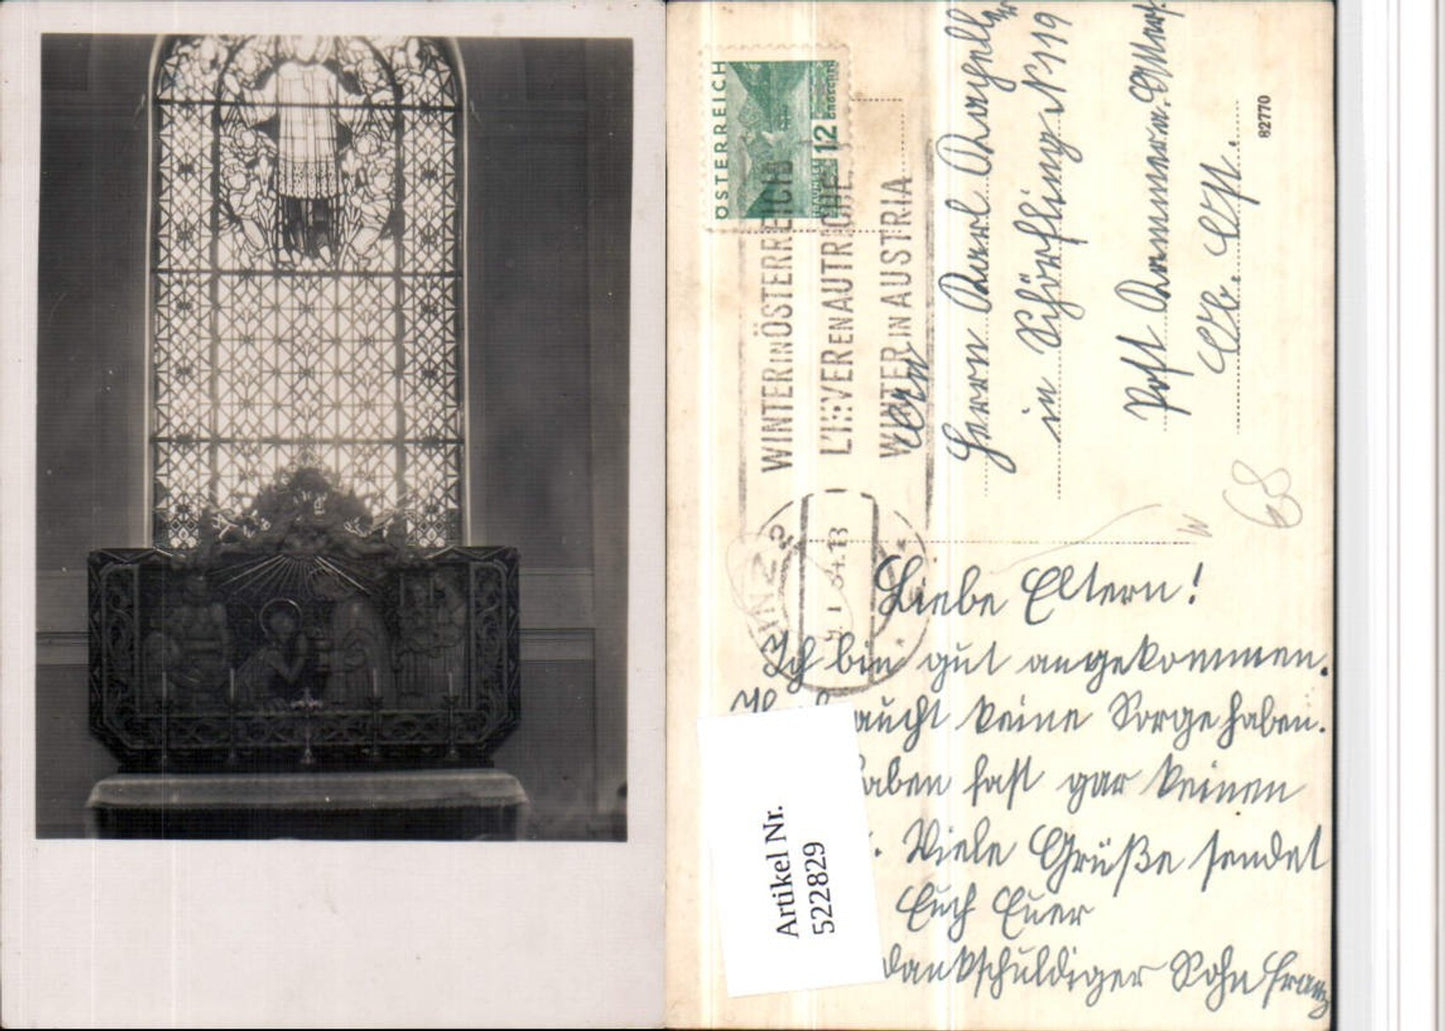 ÖSTERREICH
12
GROSCHEN
TRAUNSEE
WINTER IN ÖSTERREICH
L'HIVER EN AUTRICHE
WINTER IN AUSTRIA
LINZ 2
Herrn Karl
in Schörfling N 119
Post Kammer a. Atters.
Ob. Öst.
82770
68
Liebe Eltern!
Ich bin gut angekommen.
aucht keine Sorge haben.
aben fast gar keinen
. Viele Grüße sendet
Euch Euer
dankschuldiger Sohn Franz
Artikel Nr.
522829